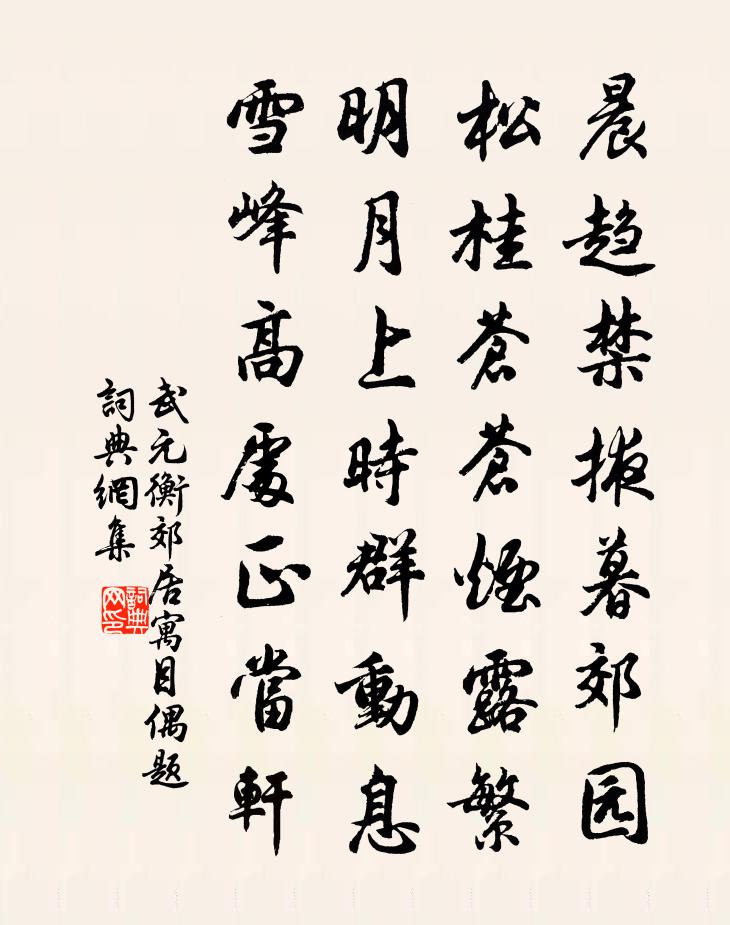 晨趋禁掖暮郊园
松桂蒼蒼煙露繁
明月上時群動息
雪峰高處正當軒
武元衡郊居寓目偶题
詞典網集
詞典网印